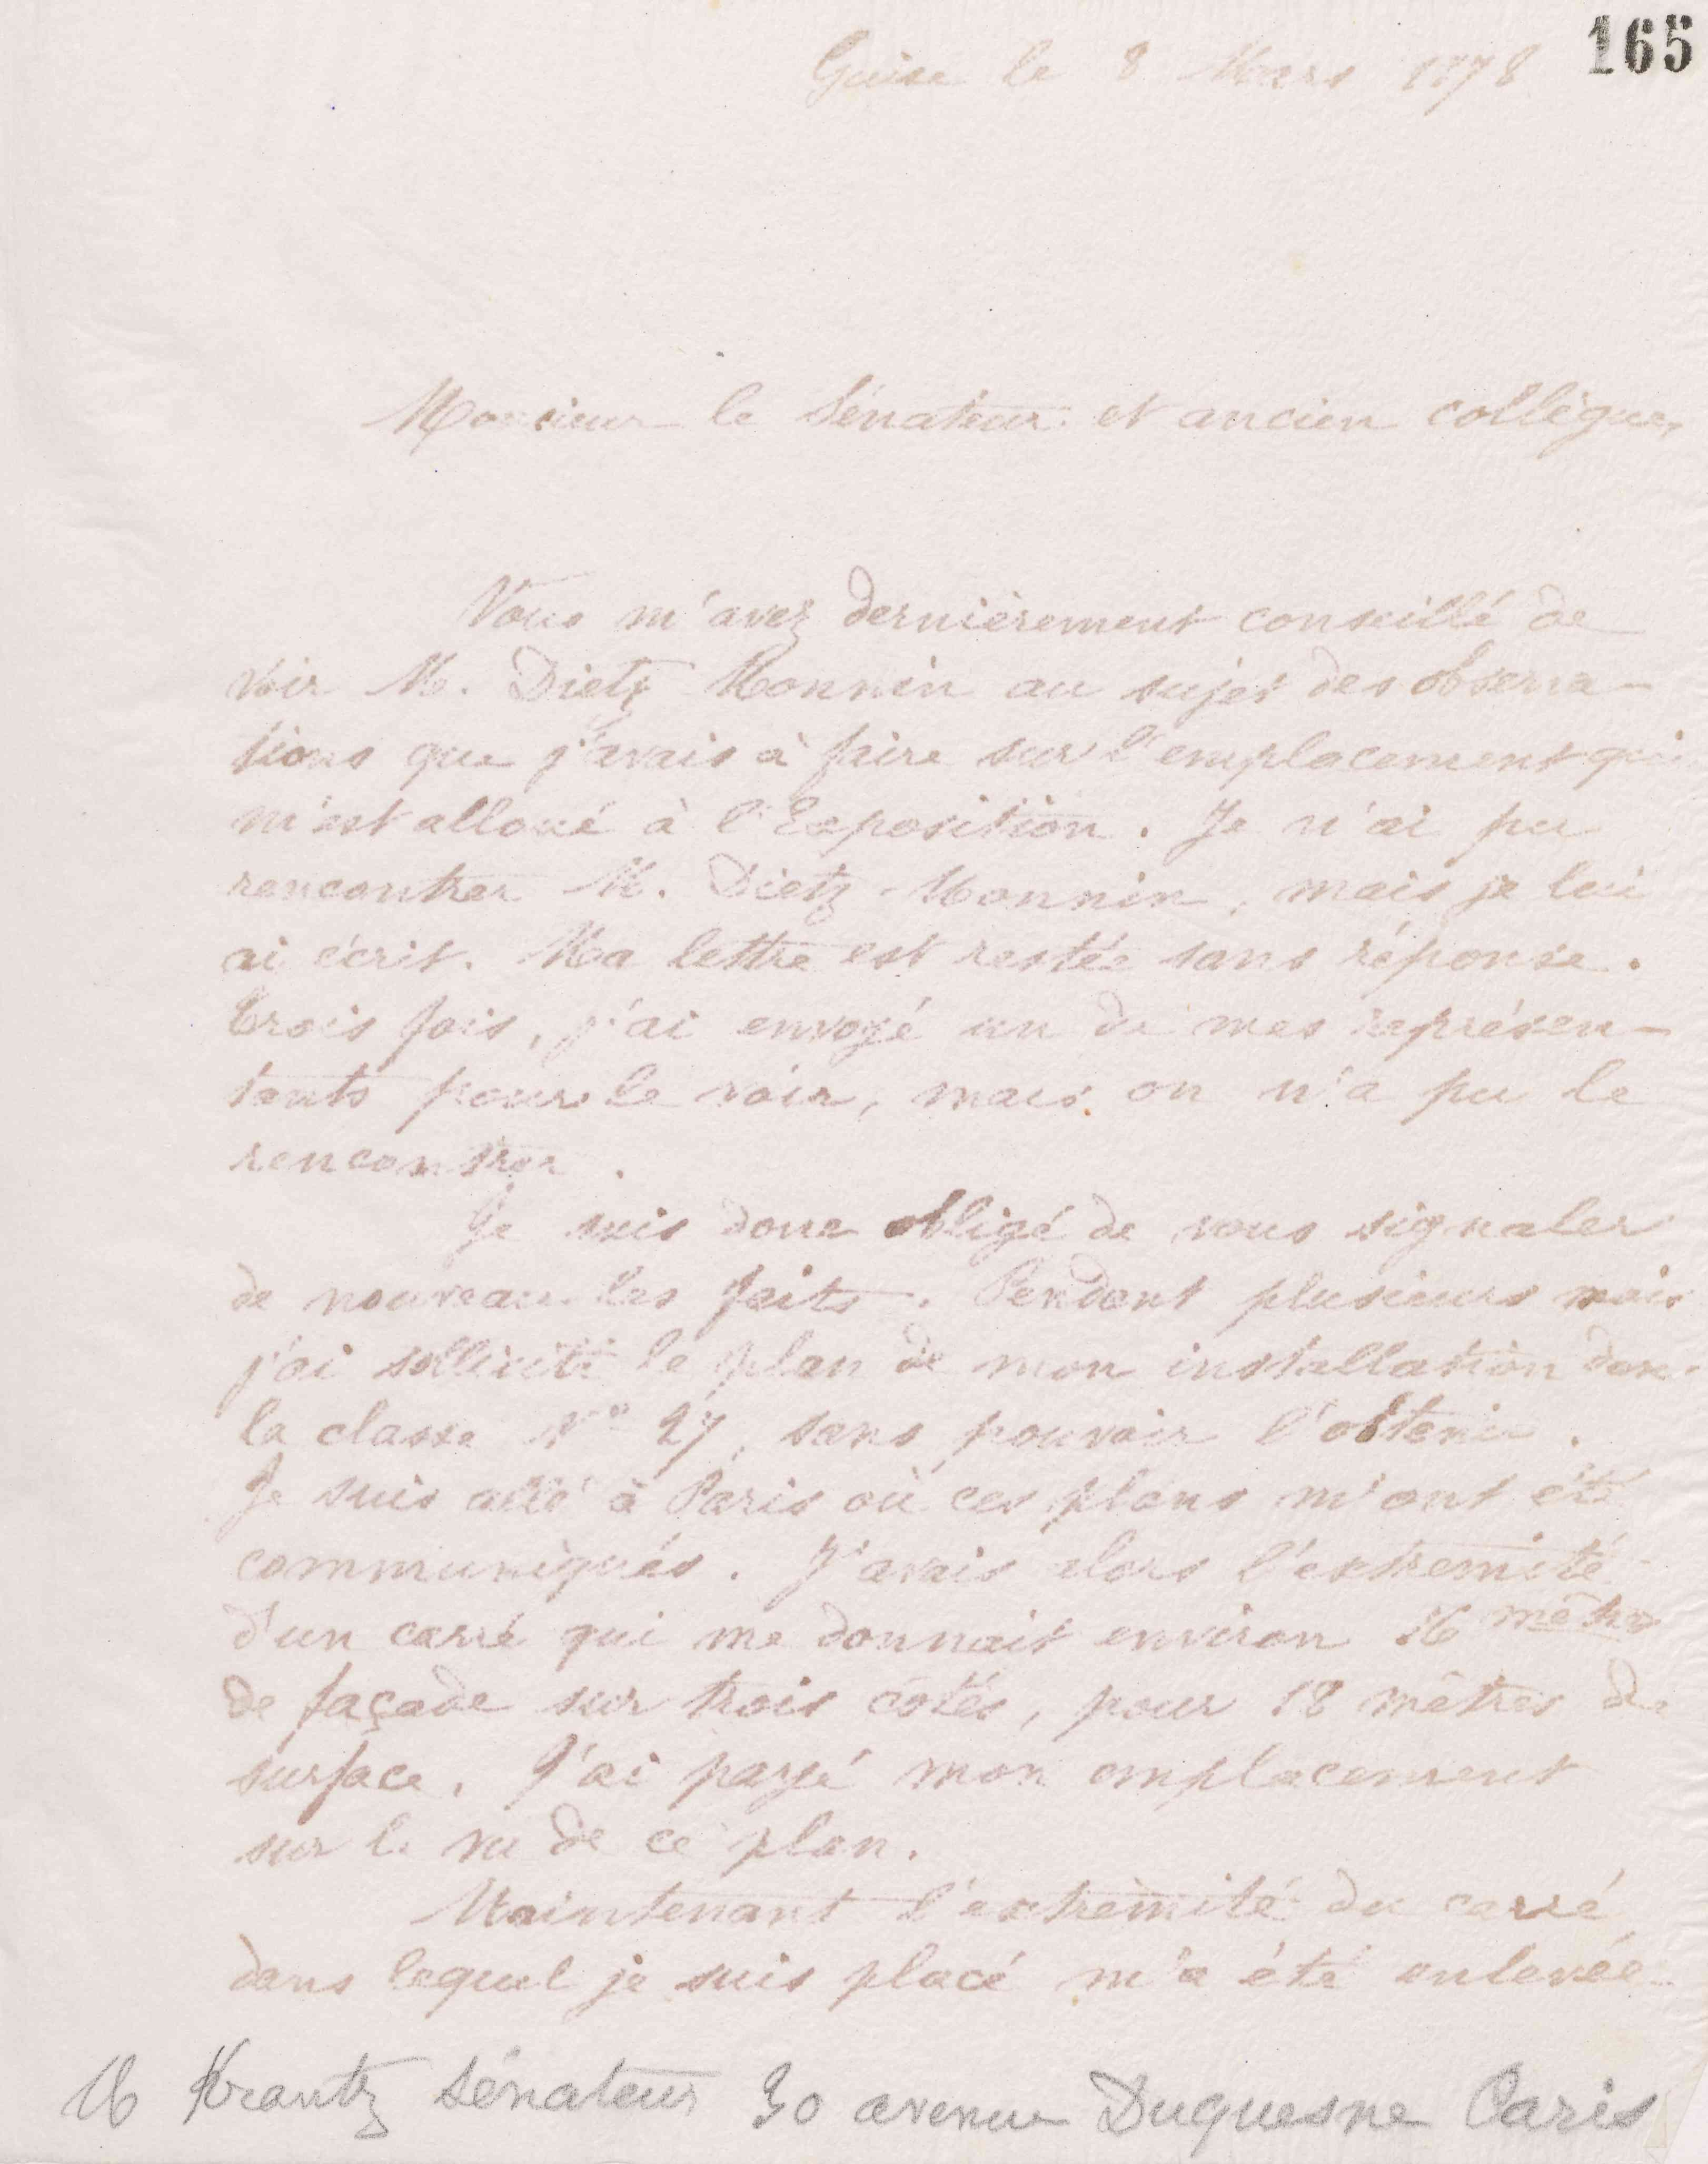 165
Guise le 8 Mars 1878
Monsieur le Sénateur et ancien collègue,
Vous m'avez dernièrement conseillé de
voir M. Dietz Monnin au sujet des observa-
tions que j'avais à faire sur l'emplacement qui
m'est alloué à l'Exposition. Je n'ai pu
rencontrer M. Dietz-Monnin, mais je lui
ai écrit. Ma lettre est restée sans réponse.
Trois fois, j'ai envoyé un de mes représen-
tants pour le voir, mais on n'a pu le
rencontrer.
Je suis donc obligé de vous signaler
de nouveau les faits. Pendant plusieurs mois
j'ai sollicité le plan de mon installation dans
la classe N° 27, sans pouvoir l'obtenir.
Je suis allé à Paris où ces plans m'ont été
communiqués. J'avais alors l'extrémité
d'un carré qui me donnait environ 16 mètres
de façade sur trois côtés, pour 18 mètres de
surface. J'ai payé mon emplacement
sur le vu de ce plan.
Maintenant l'extrémité du carré
dans lequel je suis placé m'a été enlevée
M Krantz Sénateur 30 avenue Duquesne Paris